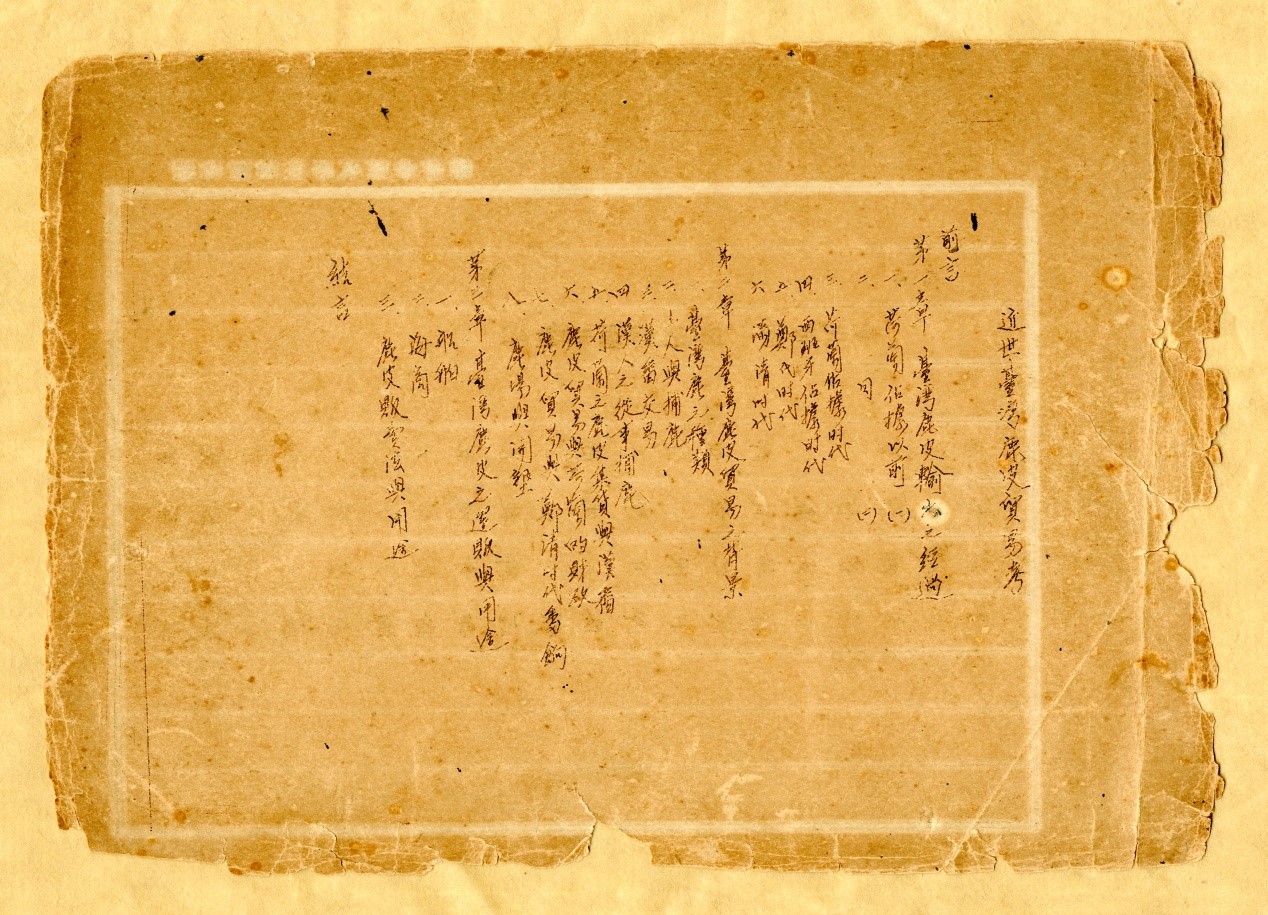 近世臺灣鹿皮貿易考
前言
第一章 臺灣鹿皮輸出之經過
一、荷蘭佔據以前(一)
二、 同 (二)
三、荷蘭佔據时代
四、西班牙佔據时代
五、鄭代时代
六、滿清时代
第二章 臺灣鹿皮貿易之背景
一、臺灣鹿之種類
二、土人與捕鹿
三、漢番交易
四、漢人之從事捕鹿
五、荷蘭之鹿皮集貨與漢番
六、鹿皮貿易與荷蘭的財政
七、鹿皮貿易與鄭清时代番餉
八、鹿場與開墾
第三章 臺灣鹿皮之運販與用途
一、船舶
二、海商
三、鹿皮販賣法與用途
結言